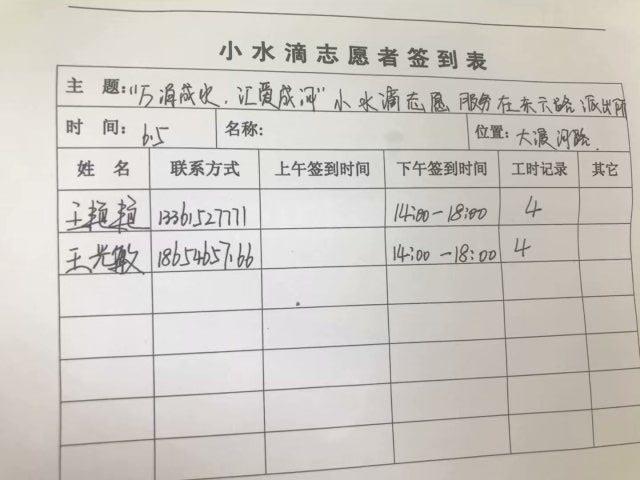 小水滴志愿者签到表
主 题:"万滴成水.汇爱成河"小水滴志愿服务在东六路派出所
时 间: 6.5 名称: 位置: 大渡河路
姓 名 联系方式 上午签到时间 下午签到时间 工时记录 其它
王艳艳 13361527771 14:00-18:00 4
王光敏 18654657166 14:00-18:00 4